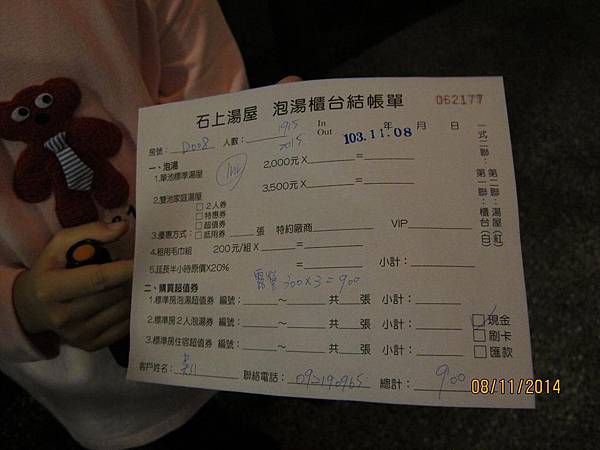 石上湯屋 泡湯櫃台結帳單 062177
房號：D008 人數： In 1915
Out 2015 103.11.08 年 月 日
一、泡湯
1.單池標準湯屋 2,000元X =
2.雙池家庭湯屋 3,500元X =
□2人券
□特惠券
□超值券
3.優惠方式：□抵用券 張 特約廠商 VIP
4.租用毛巾組 200元/組X =
5.延長半小時原價X20% = 小計：
露營 300X3=900
二、購買超值券
1.標準房泡湯超值券 編號： ～ 共 張 小計：
2.標準房2人泡湯券 編號： ～ 共 張 小計：
3.標準房住宿超值券 編號： ～ 共 張 小計：
□現金
□刷卡
□匯款
客戶姓名： 聯絡電話： 總計：900
一式二聯：第一聯：櫃台(白)
第二聯：湯屋(紅)
08/11/2014